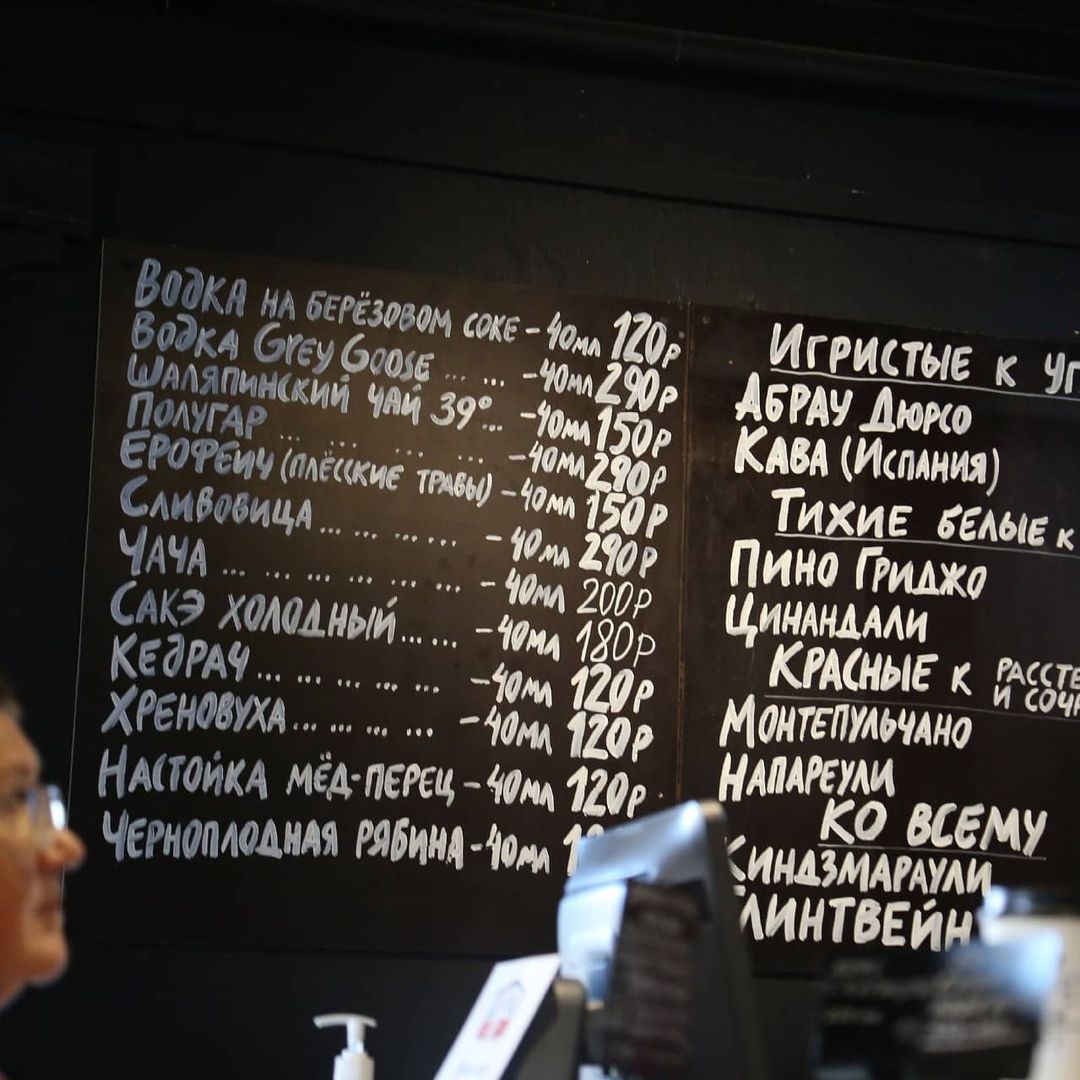 Водка на берёзовом соке - 40мл 120р
Водка Grey Goose ... ... - 40мл 290р
Шаляпинский чай 39°... - 40мл 150р
Полугар ... ... ... ... - 40мл 290р
Ерофеич (плёсские травы) - 40мл 150р
Сливовица ... ... ... - 40мл 290р
Чача ... ... ... ... ... ... - 40мл 200р
Сакэ холодный ... ... - 40мл 180р
Кедрач ... ... ... ... - 40мл 120р
Хреновуха ... ... ... ... - 40мл 120р
Настойка мёд-перец - 40мл 120р
Черноплодная рябина - 40мл
Игристые к
Абрау Дюрсо
Кава (Испания)
Тихие белые к
Пино Гриджо
Цинандали
Красные к
и
Монтепульчано
Напареули
ко всему
Киндзмараули
Глинтвейн